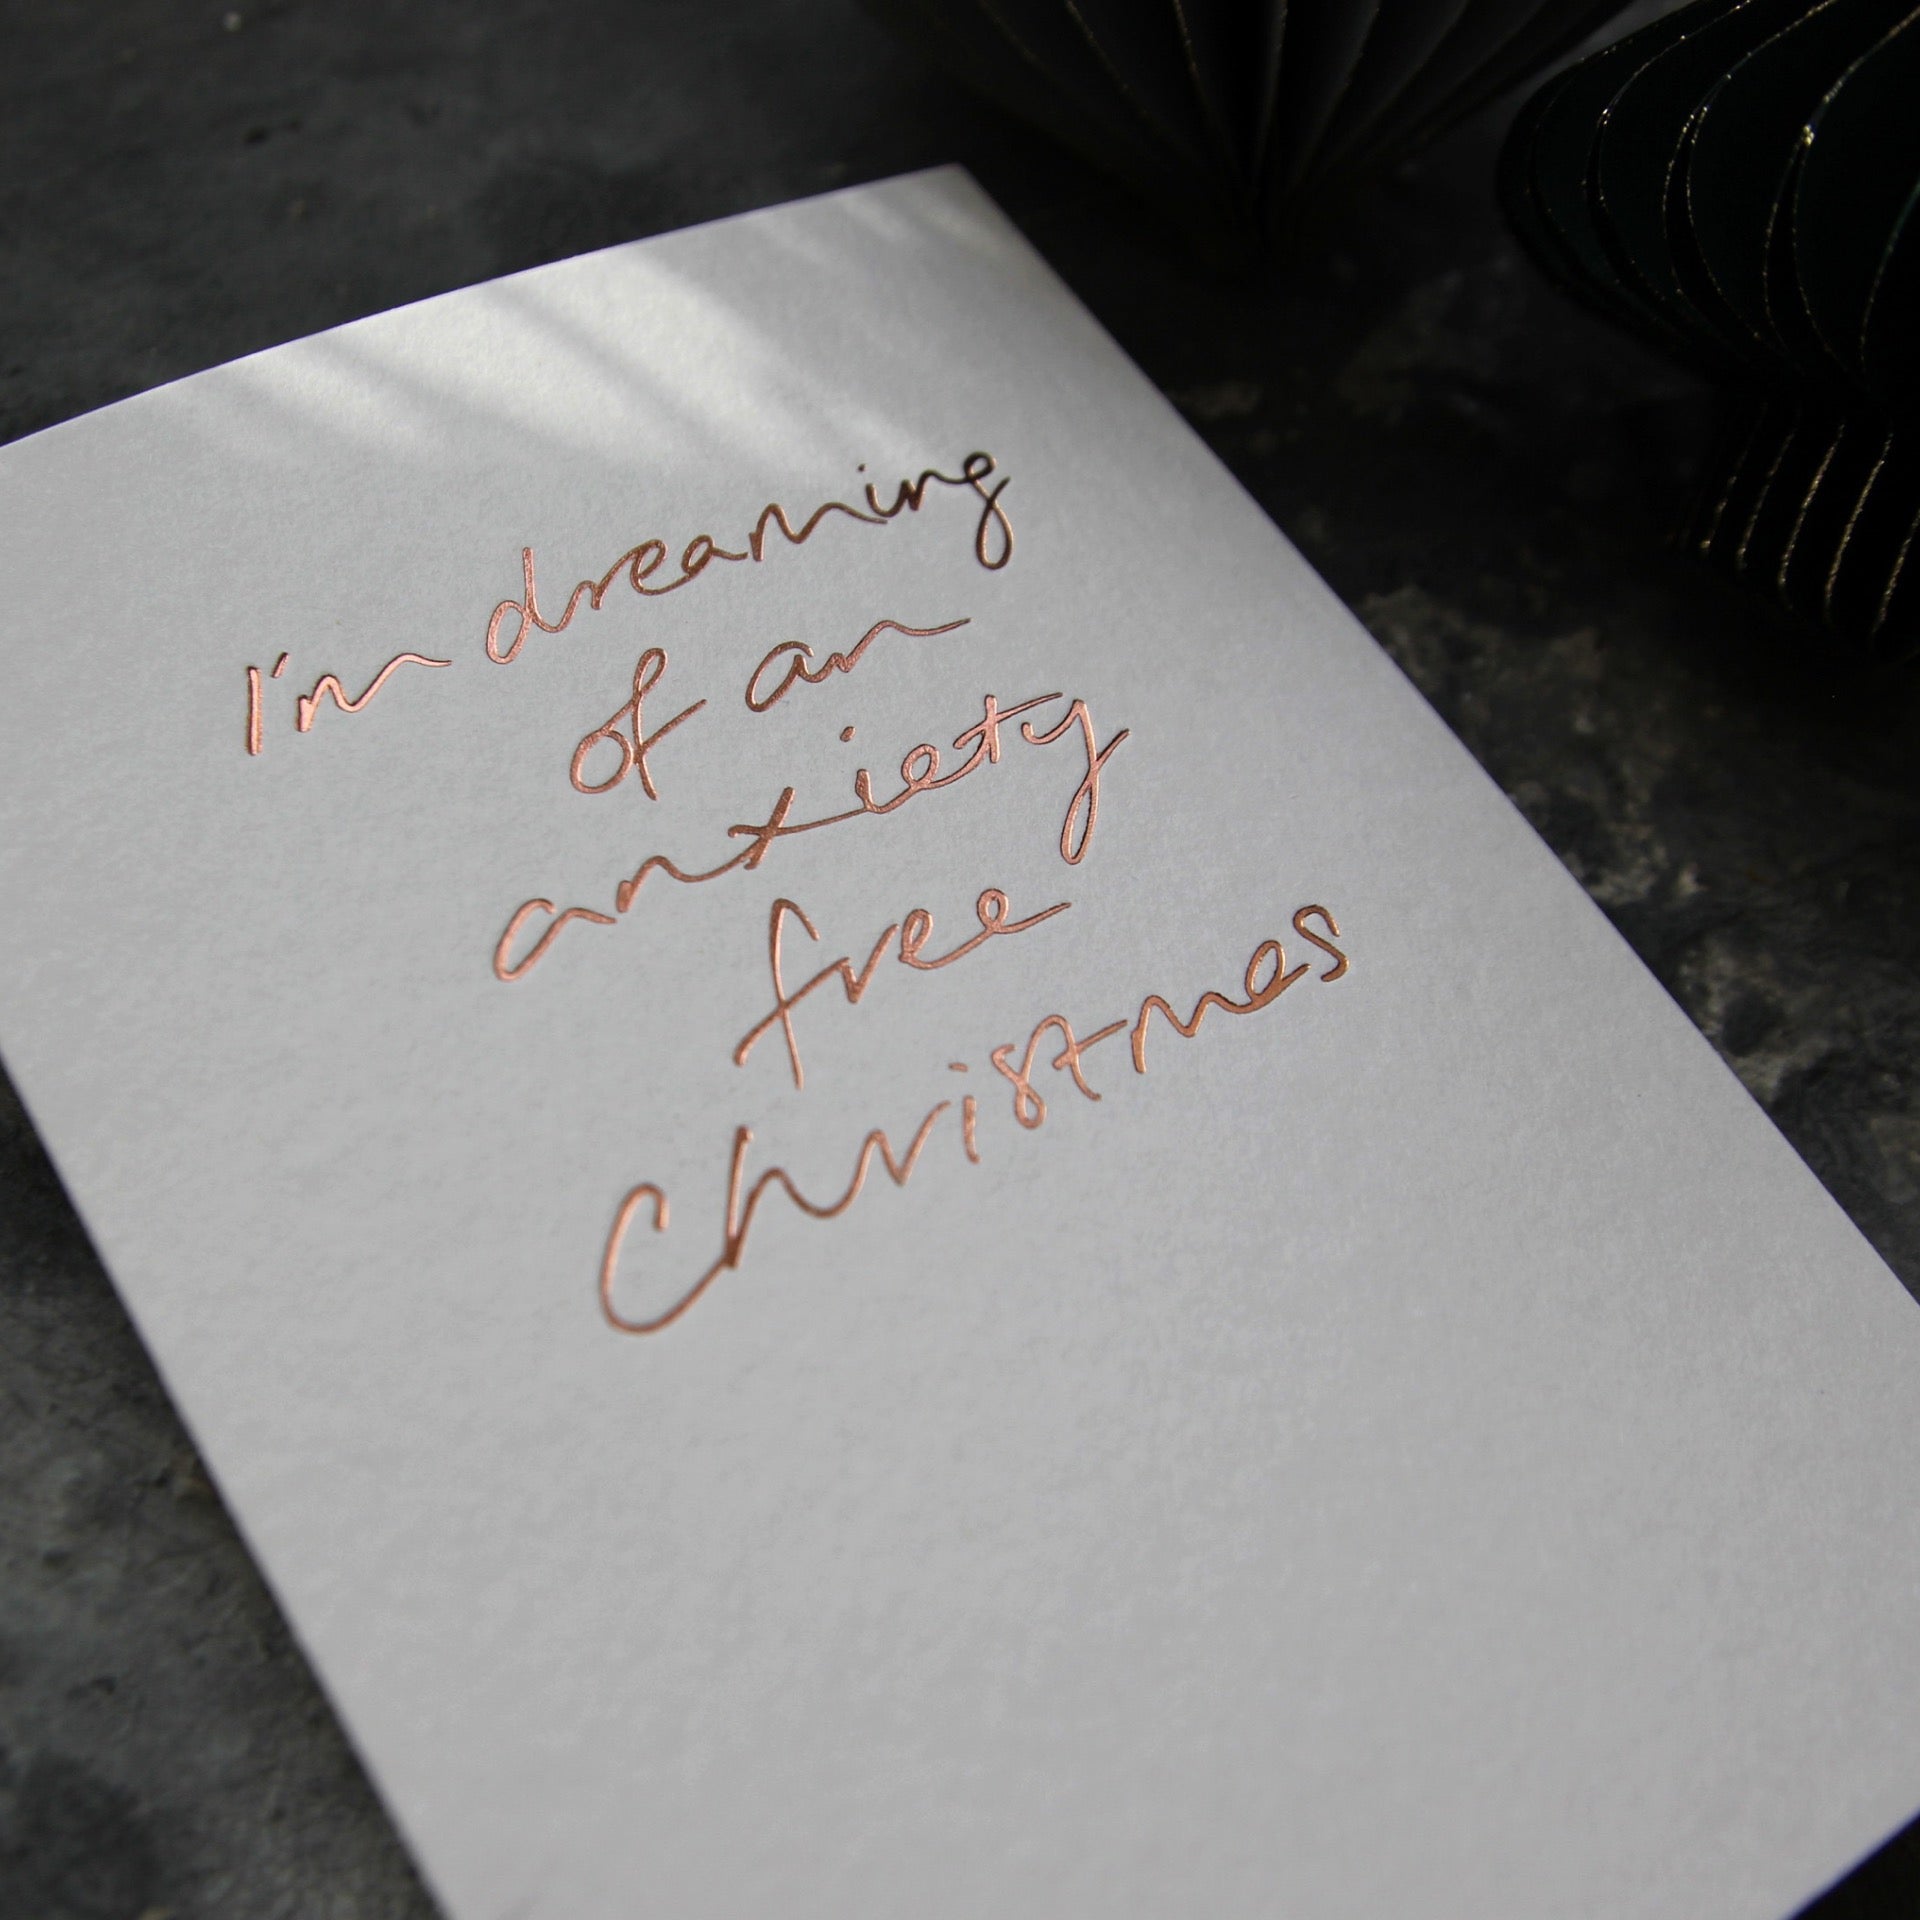 I'm dreaming
of an
anxiety
free
Christmas